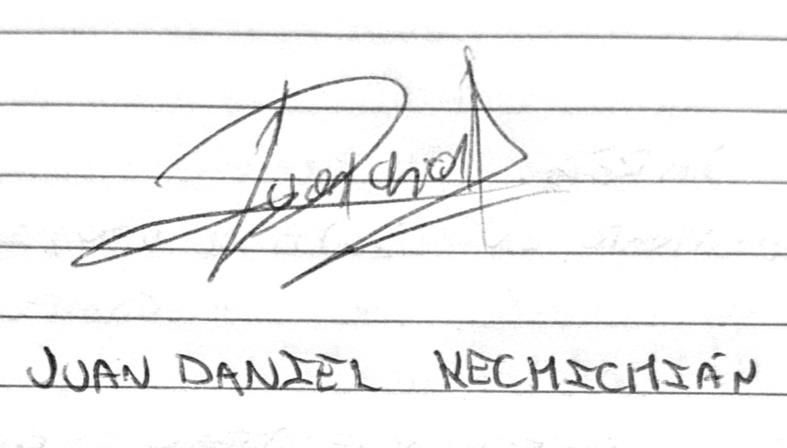 JUAN DANIEL KECHICHIÁN